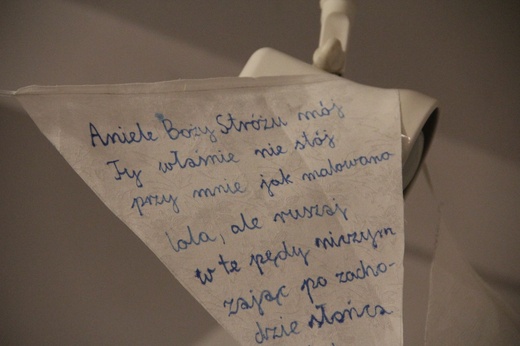 Aniele Boży Stróżu mój
Ty właśnie nie stój
przy mnie jak malowana
lala, ale ruszaj
w te pędy niczym
zając po zacho-
dzie słońca